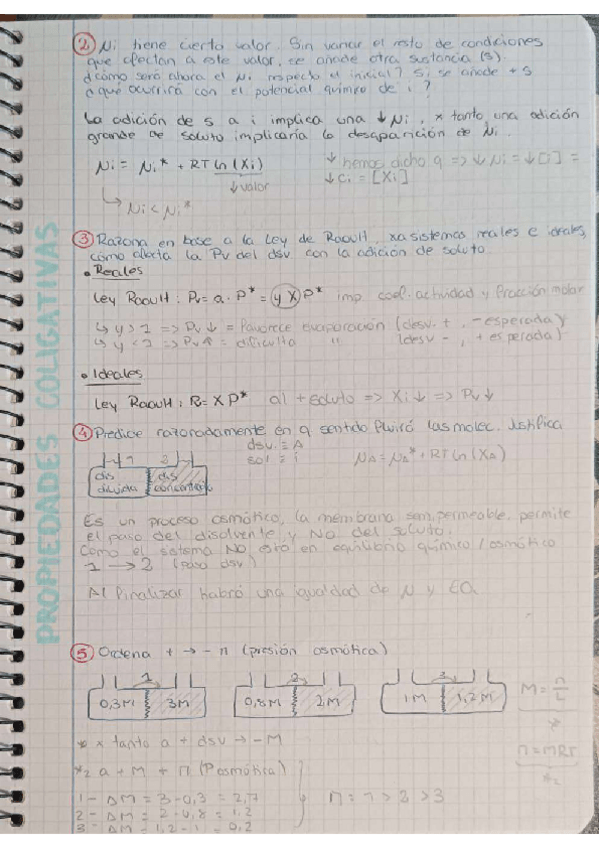 PROPIEDADES COLIGATIVAS
② Ni tiene cierto valor. Sin variar el resto de condiciones
que afectan a este valor, se añade otra sustancia (s).
¿cómo será ahora el Ni respecto al inicial? Si se añade + s
¿qué ocurrirá con el potencial químico de i?
La adición de s a i implica una ↓ Ni, x tanto una adición
grande de soluto implicaría la desaparición de Ni.
Ni = Ni* + RT ln (Xi)
↓ valor
↓ hemos dicho q => ↓ Ni = ↓ [i] =
↓ Ci = [Xi]
Ni < Ni*
③ Razona en base a la Ley de Raoult, xa sistemas reales e ideales,
cómo afecta la Pv del dsv con la adición de soluto.
• Reales
Ley Raoult: Pv = a · P* = y X P* imp. coef. actividad y fracción molar
↳ y > 1 => Pv ↓ = Favorece evaporación (desv. +, - esperada)
↳ y < 1 => Pv ↑ = dificulta " (desv -, + esperada)
• Ideales
Ley Raoult: Pv = X P* al + soluto => Xi ↓ => Pv ↓
④ Predice razonadamente en q sentido fluirá las molec. Justifica
dsv. = A
sol = i
NA = NA* + RT ln (XA)
dis
diluida
dis
concentrada
Es un proceso osmótico, la membrana semipermeable permite
el paso del disolvente y NO del soluto.
Como el sistema NO está en equilibrio químico / osmótico
1 → 2 (pasa dsv)
Al finalizar habrá una igualdad de N y EQ.
⑤ Ordena + → - π (presión osmótica)
1
0,3M 3M
2
0,8M 2M
3
1M 1,2M
M = n/L
*
* x tanto a + dsv → - M
π = MRT
*2
*2 a + M + π (Posmótica)
1 - ΔM = 3 - 0,3 = 2,7
2 - ΔM = 2 - 0,8 = 1,2
3 - ΔM = 1,2 - 1 = 0,2
π = 1 > 2 > 3